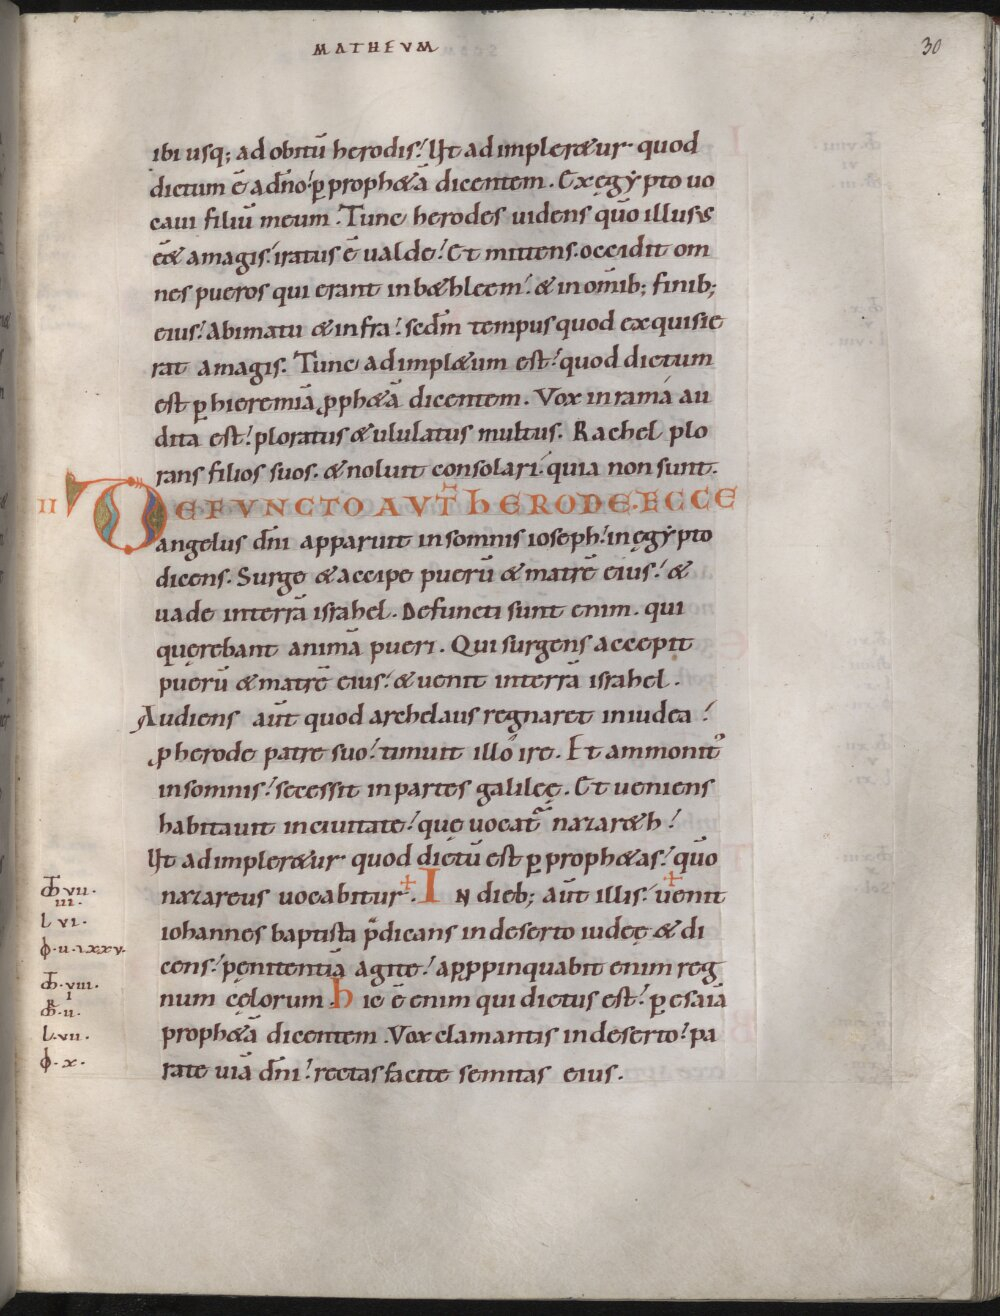 MATHEVM
30
ibi usq; ad obitū herodis. Ut adimpleretur quod
dictum ē a dño p̱ prophetā dicentem. Ex egẏpto uo
caui filiū meum. Tunc herodes uidens qūo illusus
eēt a magis. iratus ē ualde. Et mittens. occidit om
nes pueros qui erant in bethleem. & in om̄ib; finib;
eius. Abimatu & infra. secdm̄ tempus quod exquisie
rat a magis. Tunc adimpletum est. quod dictum
est p̱ hieremiā ꝓphetā dicentem. Vox in rama au
dita est. ploratus & ululatus multus. Rachel plo
rans filios suos. & noluit consolari. quia non sunt.
II
DEFVNCTO AVT̄ HERODE. ECCE
angelus dn̄i apparuit in somnis ioseph. in ęgẏpto
dicens. Surge & accipe puerū & matrē eius. &
uade in terrā israhel. Defuncti sunt enim. qui
querebant animā pueri. Qui surgens accepit
puerū & matrē eius. & uenit in terrā israhel.
Audiens aūt quod archelaus regnaret in iudea.
ꝓ herode patre suo. timuit illo ire. Et ammonit᾽
in somnis. secessit in partes galileę. Et ueniens
habitauit in ciuitate. quę uocat᷑ nazareth.
Ut adimpleretur quod dictū est p̱ prophetas. qūo
nazareus uocabitur. IN dieb; aūt illis. uenit
iohannes baptista p̄dicans in deserto iudeę & di
cens. penitentiā agite. apꝓpinquabit enim reg
num cęlorum. hic ē enim qui dictus est. p̱ esaiā
prophetā dicentem. Vox clamantis in deserto. pa
rate uiā dn̄i. rectas facite semitas eius.
VII.
III.
L VI.
II. LXXV.
VIII.
I
II.
L. VII.
X.